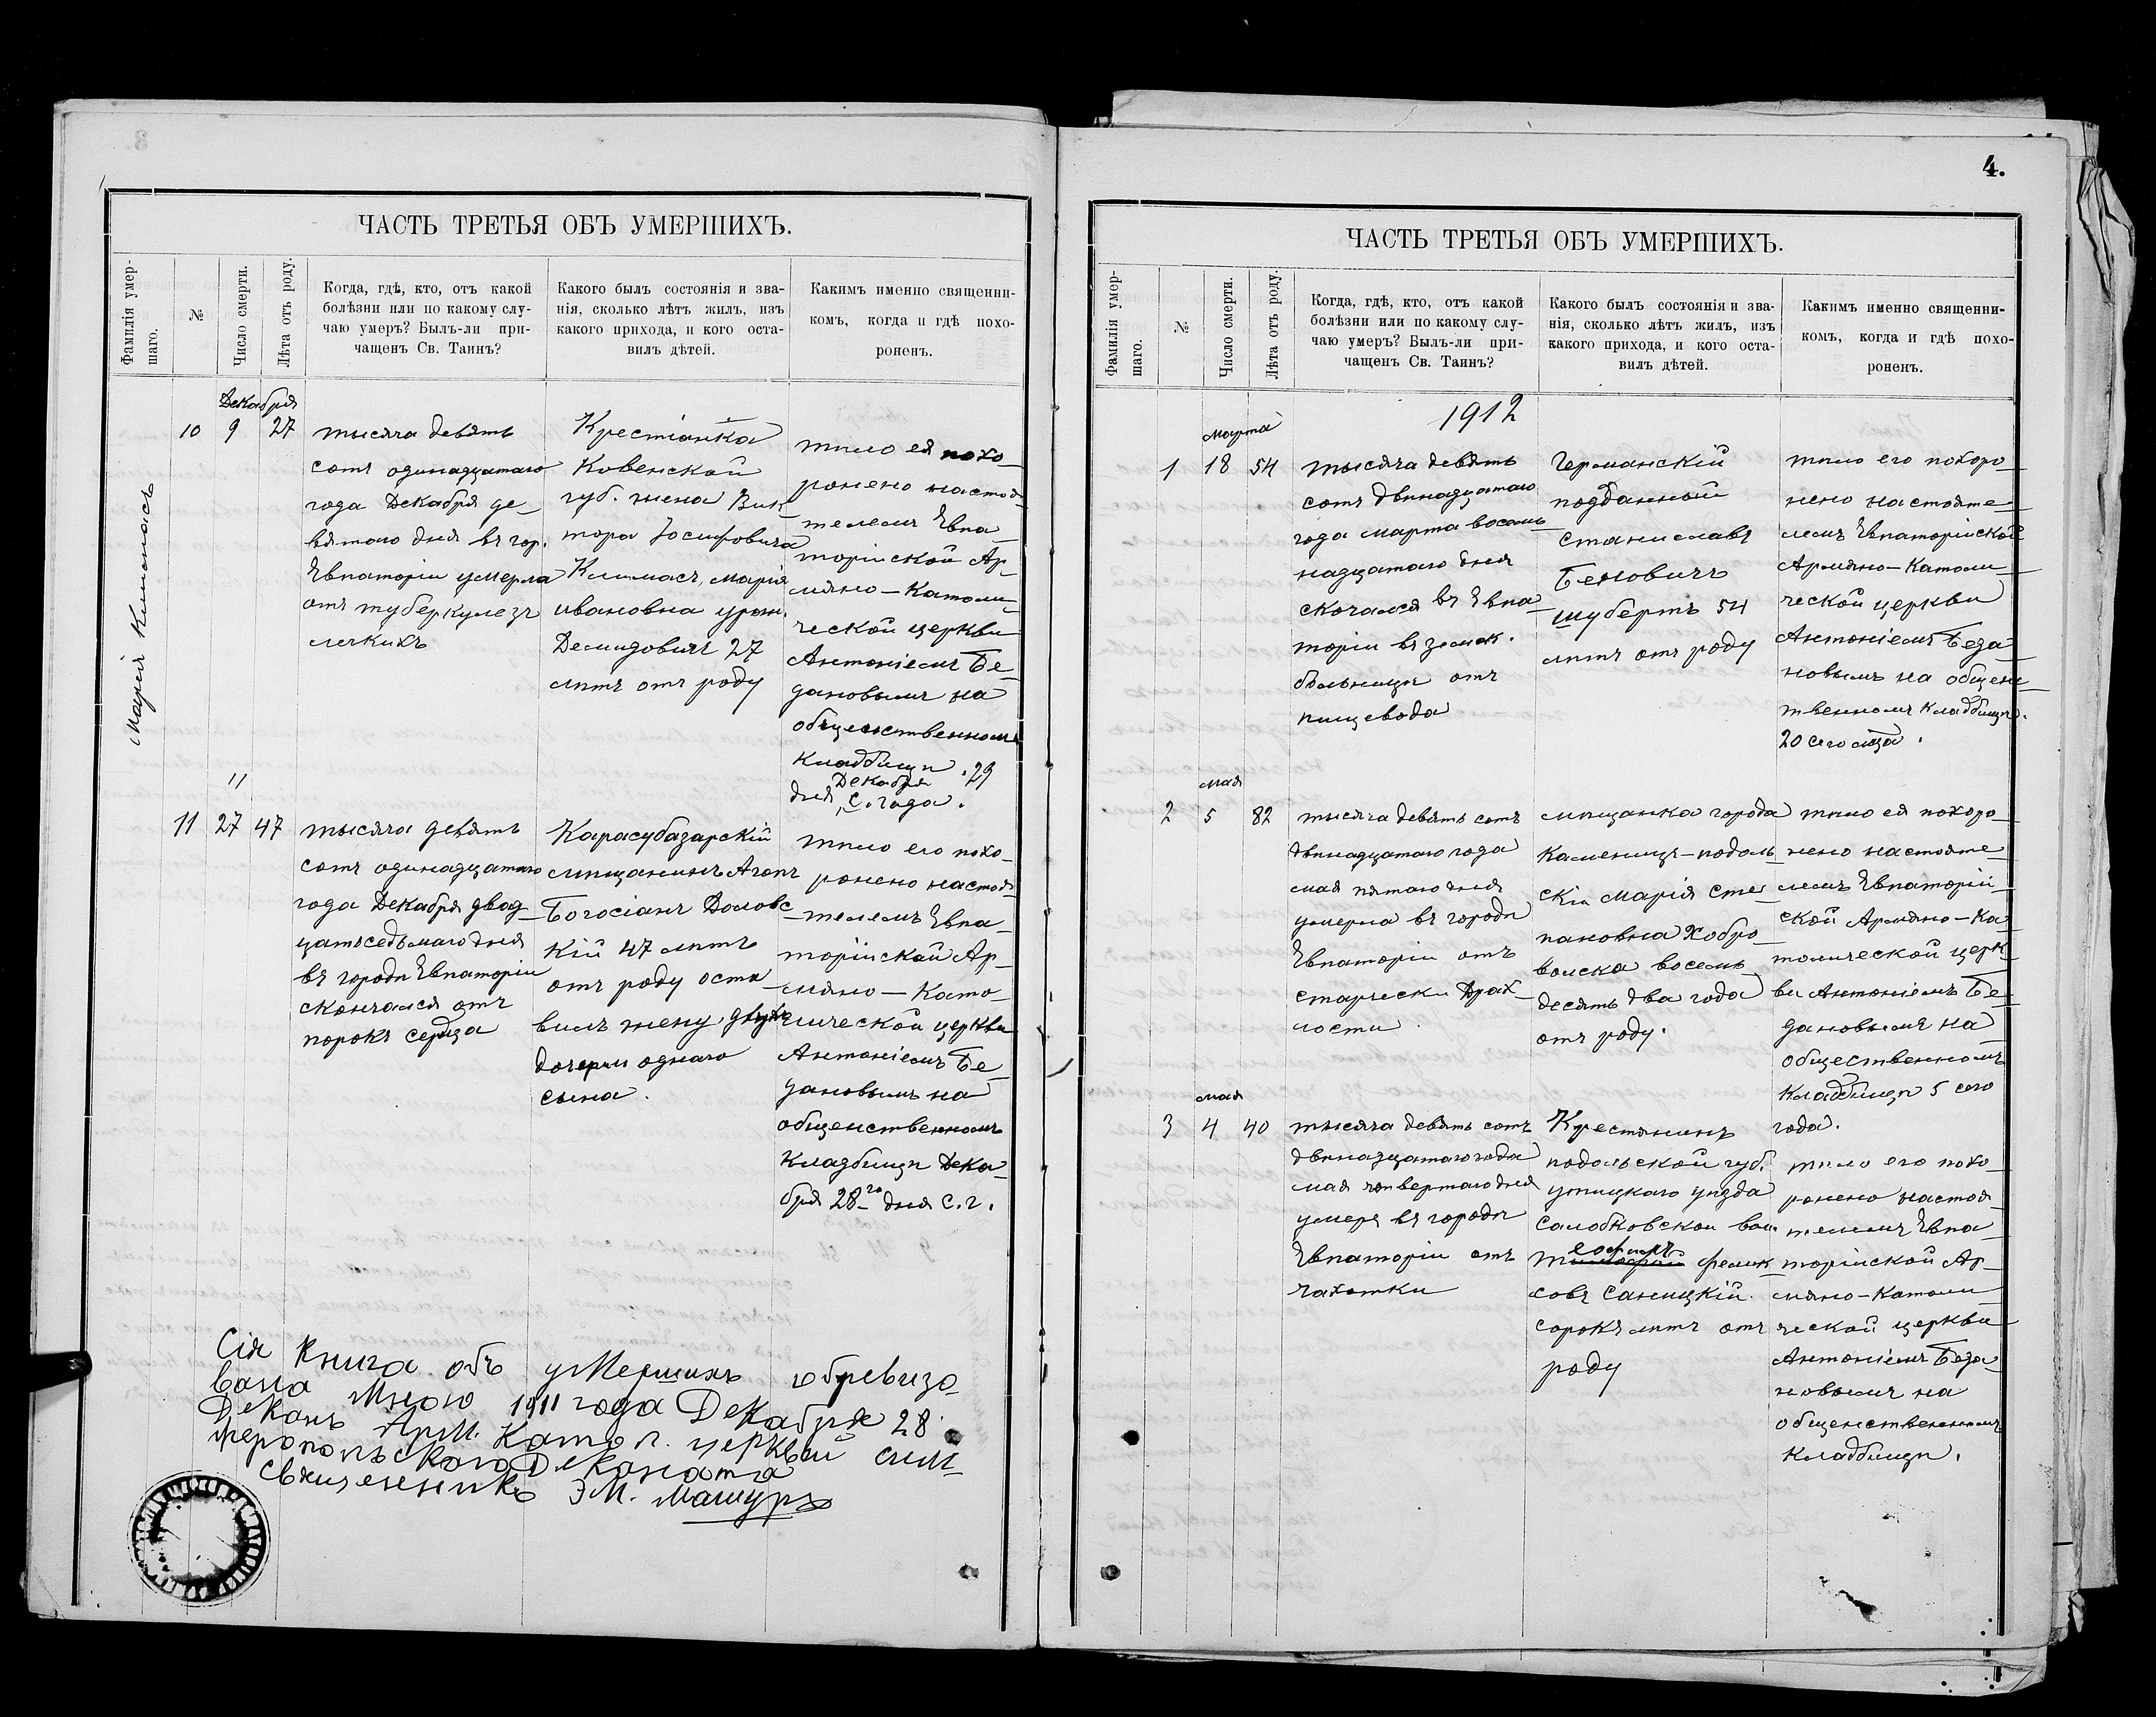 ЧАСТЬ ТРЕТЬЯ ОБЪ УМЕРШИХЪ.
Фамилія умер-
шаго.
№
Число смерти.
Лѣта отъ роду.
Когда, гдѣ, кто, отъ какой
болѣзни или по какому слу-
чаю умеръ? Былъ-ли при-
чащенъ Св. Таинъ?
Какого былъ состоянія и зва-
нія, сколько лѣтъ жилъ, изъ
какого прихода, и кого оста-
вилъ дѣтей.
Какимъ именно священни-
комъ, когда и гдѣ похо-
роненъ.
Марія Климасъ
Декабря
10 9 27
тысяча девять
сотъ одинадцатаго
года Декабря де-
вятаго дня въ гор.
Евпаторіи умерла
отъ туберкулезъ
легкихъ
Крестіанка
Ковенской
губ. жена Вик-
тора Іосифовича
Климасъ, Марія
ивановна урож.
Демидовичъ 27
лѣтъ отъ роду
тѣло ея похо-
ронено настоя-
телемъ Евпа-
торійской Ар-
мяно-Католи-
ческой церкви
Антоніемъ Бе-
дановымъ на
общественномъ
кладбищѣ . 29
Декабря
дня с. года.
11
11 27 47
тысяча девять
сотъ одинадцатаго
года Декабря двад-
цатьседьмаго дня
въ городѣ Евпаторіи
скончался отъ
порокъ сердца
Карасубазарскій
мѣщанинъ Агопъ
Богосіанъ Доловс-
кій 47 лѣтъ
отъ роду оста-
вилъ жену двухъ
дочерѣи однаго
сына.
тѣло его похо-
ронено настоя-
телемъ Евпа-
торійской Ар-
мяно-Като-
лической церкви
Антоніемъ Бе-
дановымъ на
общенственномъ
Кладбищѣ Дека-
бря 28го дня с.г.
Сія Книга объ умершихъ обревизо-
вана Мною 1911 года Декабря 28.
Деканъ Арм. Катол. церквей Сим-
феропольскаго Деканата
Священникъ Э М.
4.
ЧАСТЬ ТРЕТЬЯ ОБЪ УМЕРШИХЪ.
Фамилія умер-
шаго.
№
Число смерти.
Лѣта отъ роду.
Когда, гдѣ, кто, отъ какой
болѣзни или по какому слу-
чаю умеръ? Былъ-ли при-
чащенъ Св. Таинъ?
Какого былъ состоянія и зва-
нія, сколько лѣтъ жилъ, изъ
какого прихода, и кого оста-
вилъ дѣтей.
Какимъ именно священни-
комъ, когда и гдѣ похо-
роненъ.
1912
марта
1 18 54
тысяча девять
сотъ двѣнадцатаго
года марта восемь-
надцатаго дня
скочался въ Евпа-
торіи въ земск.
больницѣ отъ
пищевода
Германскій
подданный
Станиславъ
шубертъ 54
лѣтъ отъ роду
тѣло его похоро-
нено настояте-
лемъ Евпаторійской
Армяно-Католи-
ческой церкви
Антоніемъ Беда-
новымъ на общенс-
твенномъ Кладбищѣ.
20 сего мца.
мая
2 5 82
тысяча девять сотъ
двѣнадцатаго года
мая пятаго дня
умерла въ городѣ
Евпаторіи отъ
старчески Дрях-
лости.
мѣщанка города
Каменицъ-подоль-
скій Марія Сте-
пановна Хобро-
волска восемь-
десять два года
отъ роду.
тѣло ея похоро-
нено настояте-
лемъ Евпаторій-
ской Армяно-Ка-
толической церк-
ви Антоніемъ Бе-
дановымъ на
общественномъ
Кладбищѣ 5 сего
года.
мая
3 4 40
тысяча девять сотъ
двѣнадцатаго года
мая четвертаго дня
умеръ въ городѣ
Евпаторіи отъ
чахотки
Крестянинъ
подольской губ.
ушицкаго уѣзда
Солобковской вол.
еофилъ
феликс-
совъ Саницкій.
сорокъ лѣтъ отъ
роду
тѣло его похо-
ронено настоя-
телемъ Евпа-
торійской Ар-
мяно-Католи-
ческой церкви
Антоніемъ Беда-
новымъ на
общенственномъ
Кладбищѣ.